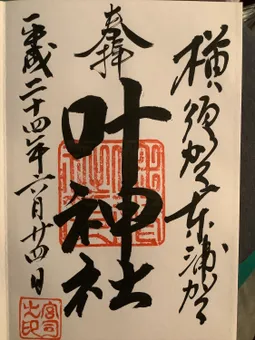 横須賀東浦賀
奉拝
叶神社
平成二十四年六月廿四日
宮司之印